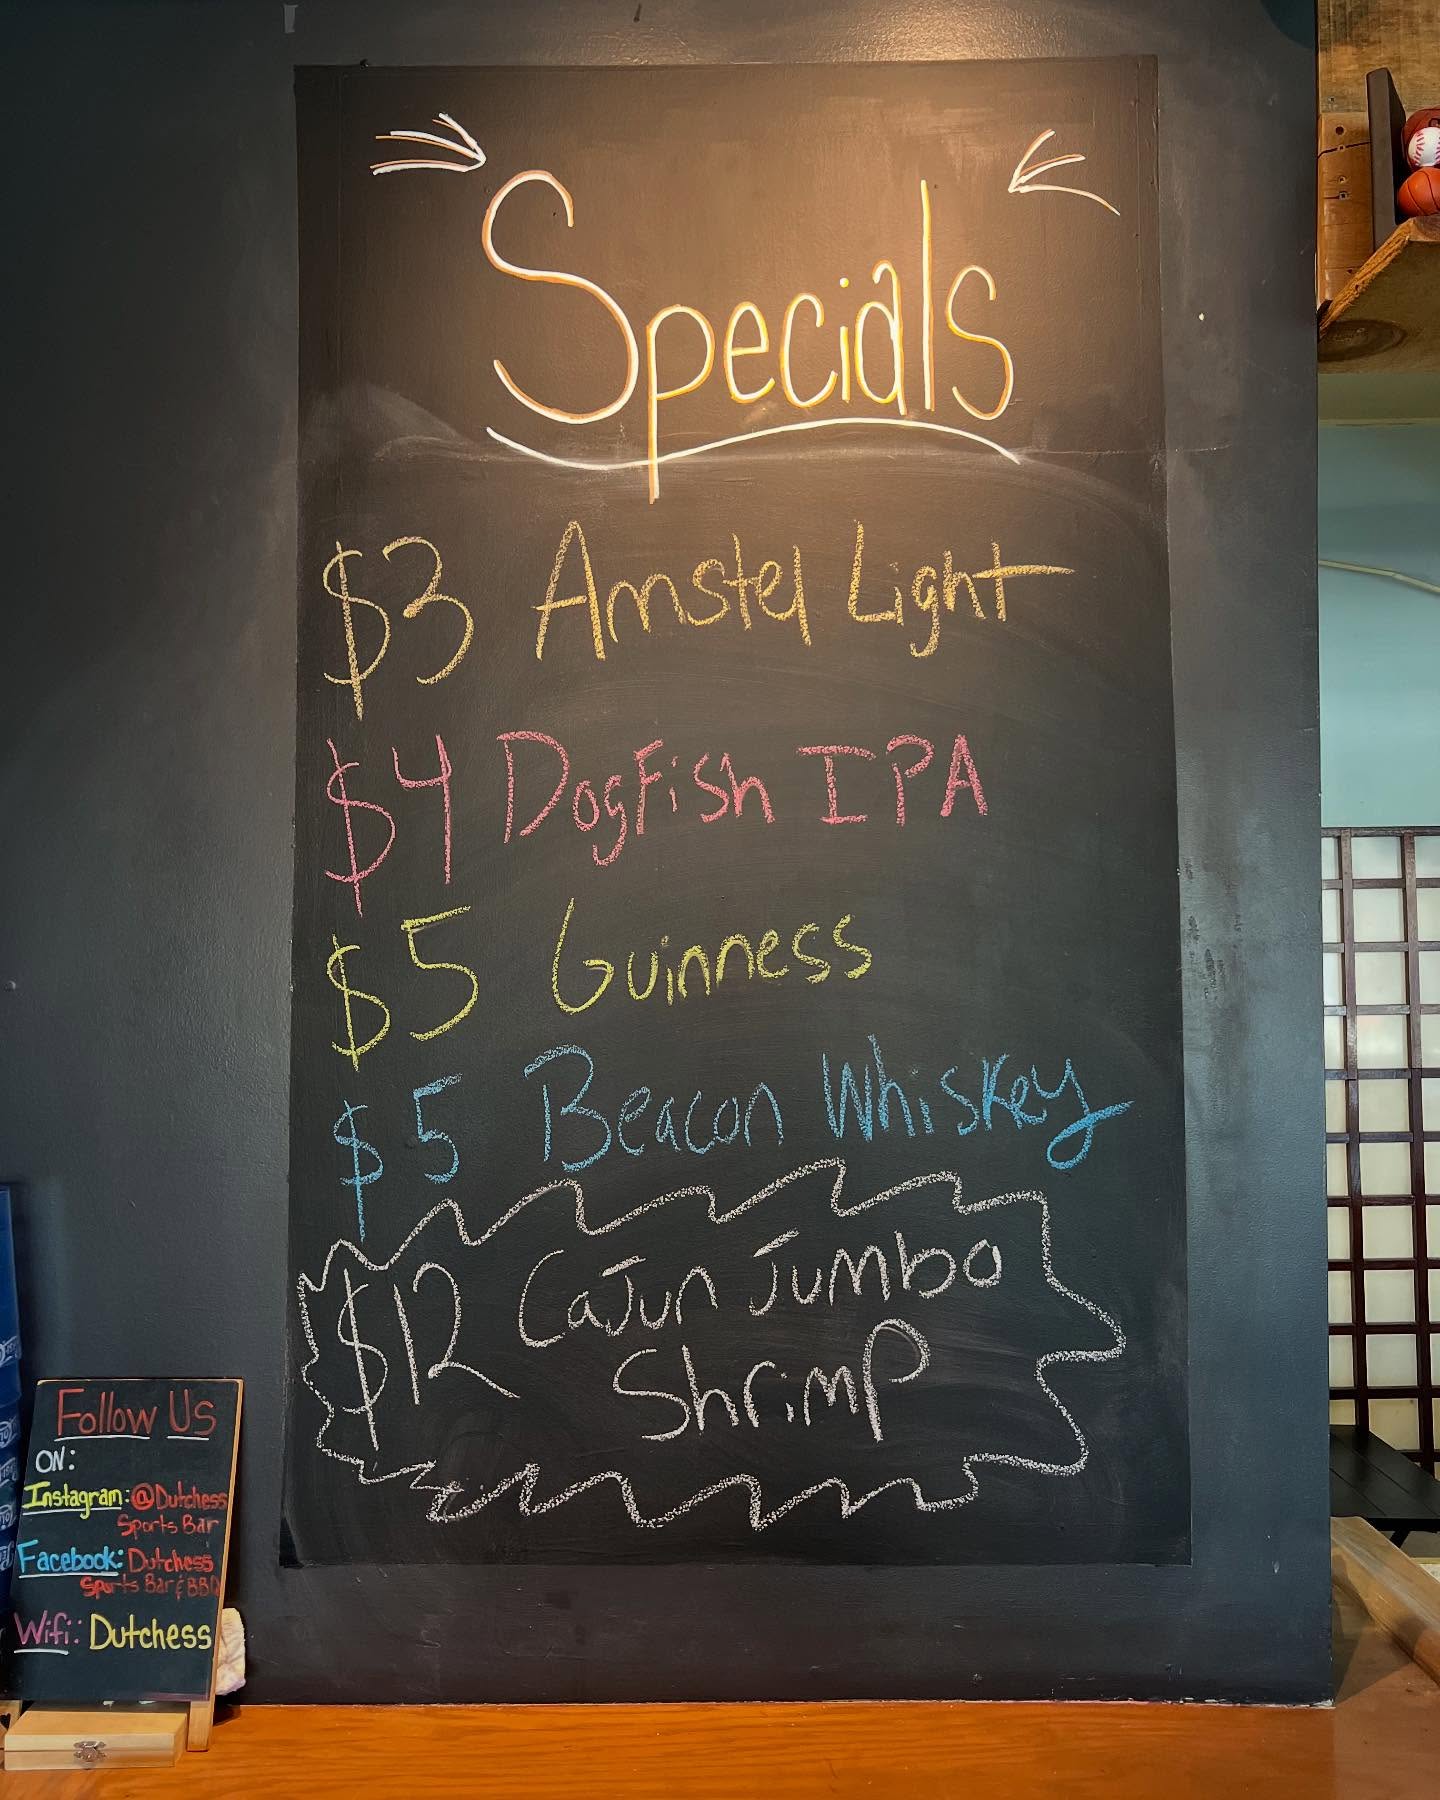 Specials
$3 Amstel Light
$4 DogFish IPA
$5 Guinness
$5 Beacon Whiskey
$12 Cajun Jumbo
Shrimp
Follow Us
ON:
Instagram: @Dutchess
Sports Bar
Facebook: Dutchess
Sports Bar & BBQ
Wifi: Dutchess